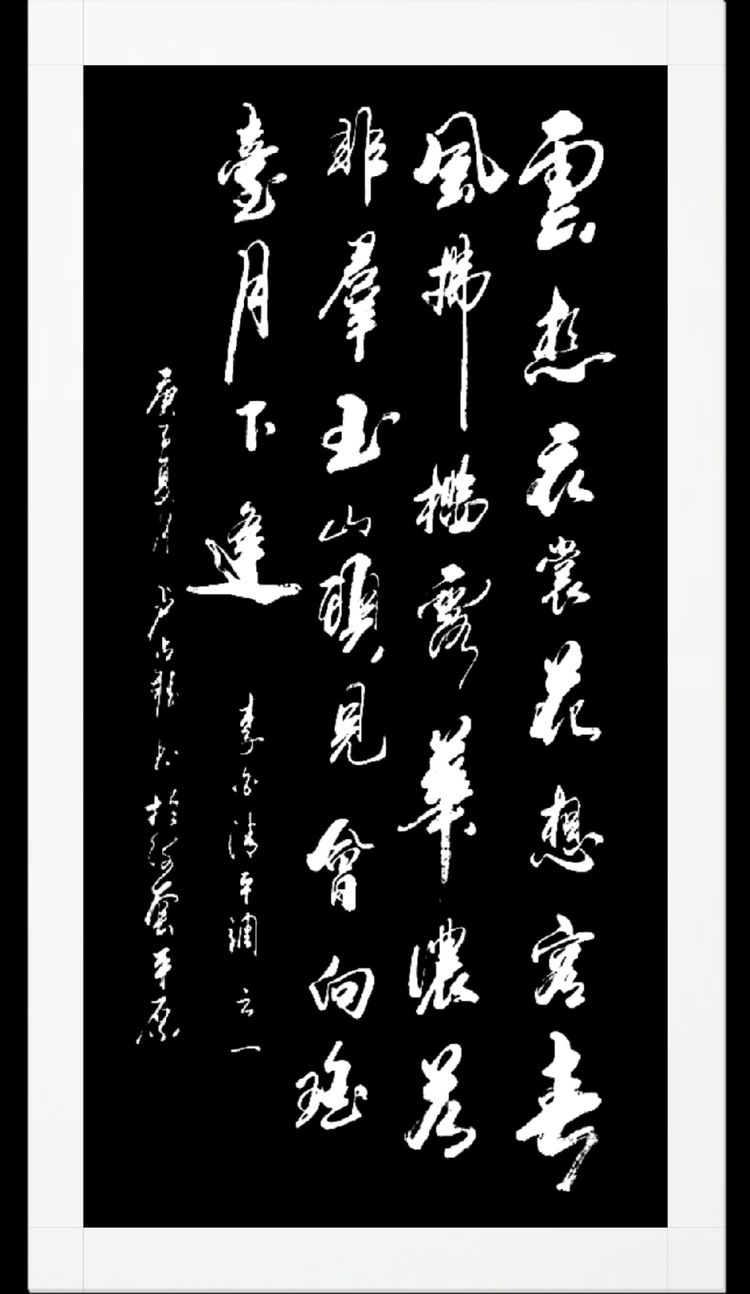 雲想衣裳花想容春
風拂檻露華濃若
非羣玉山頭見會向瑤
臺月下逢
李白清平調之一
庚子夏月 占 书於河套平原